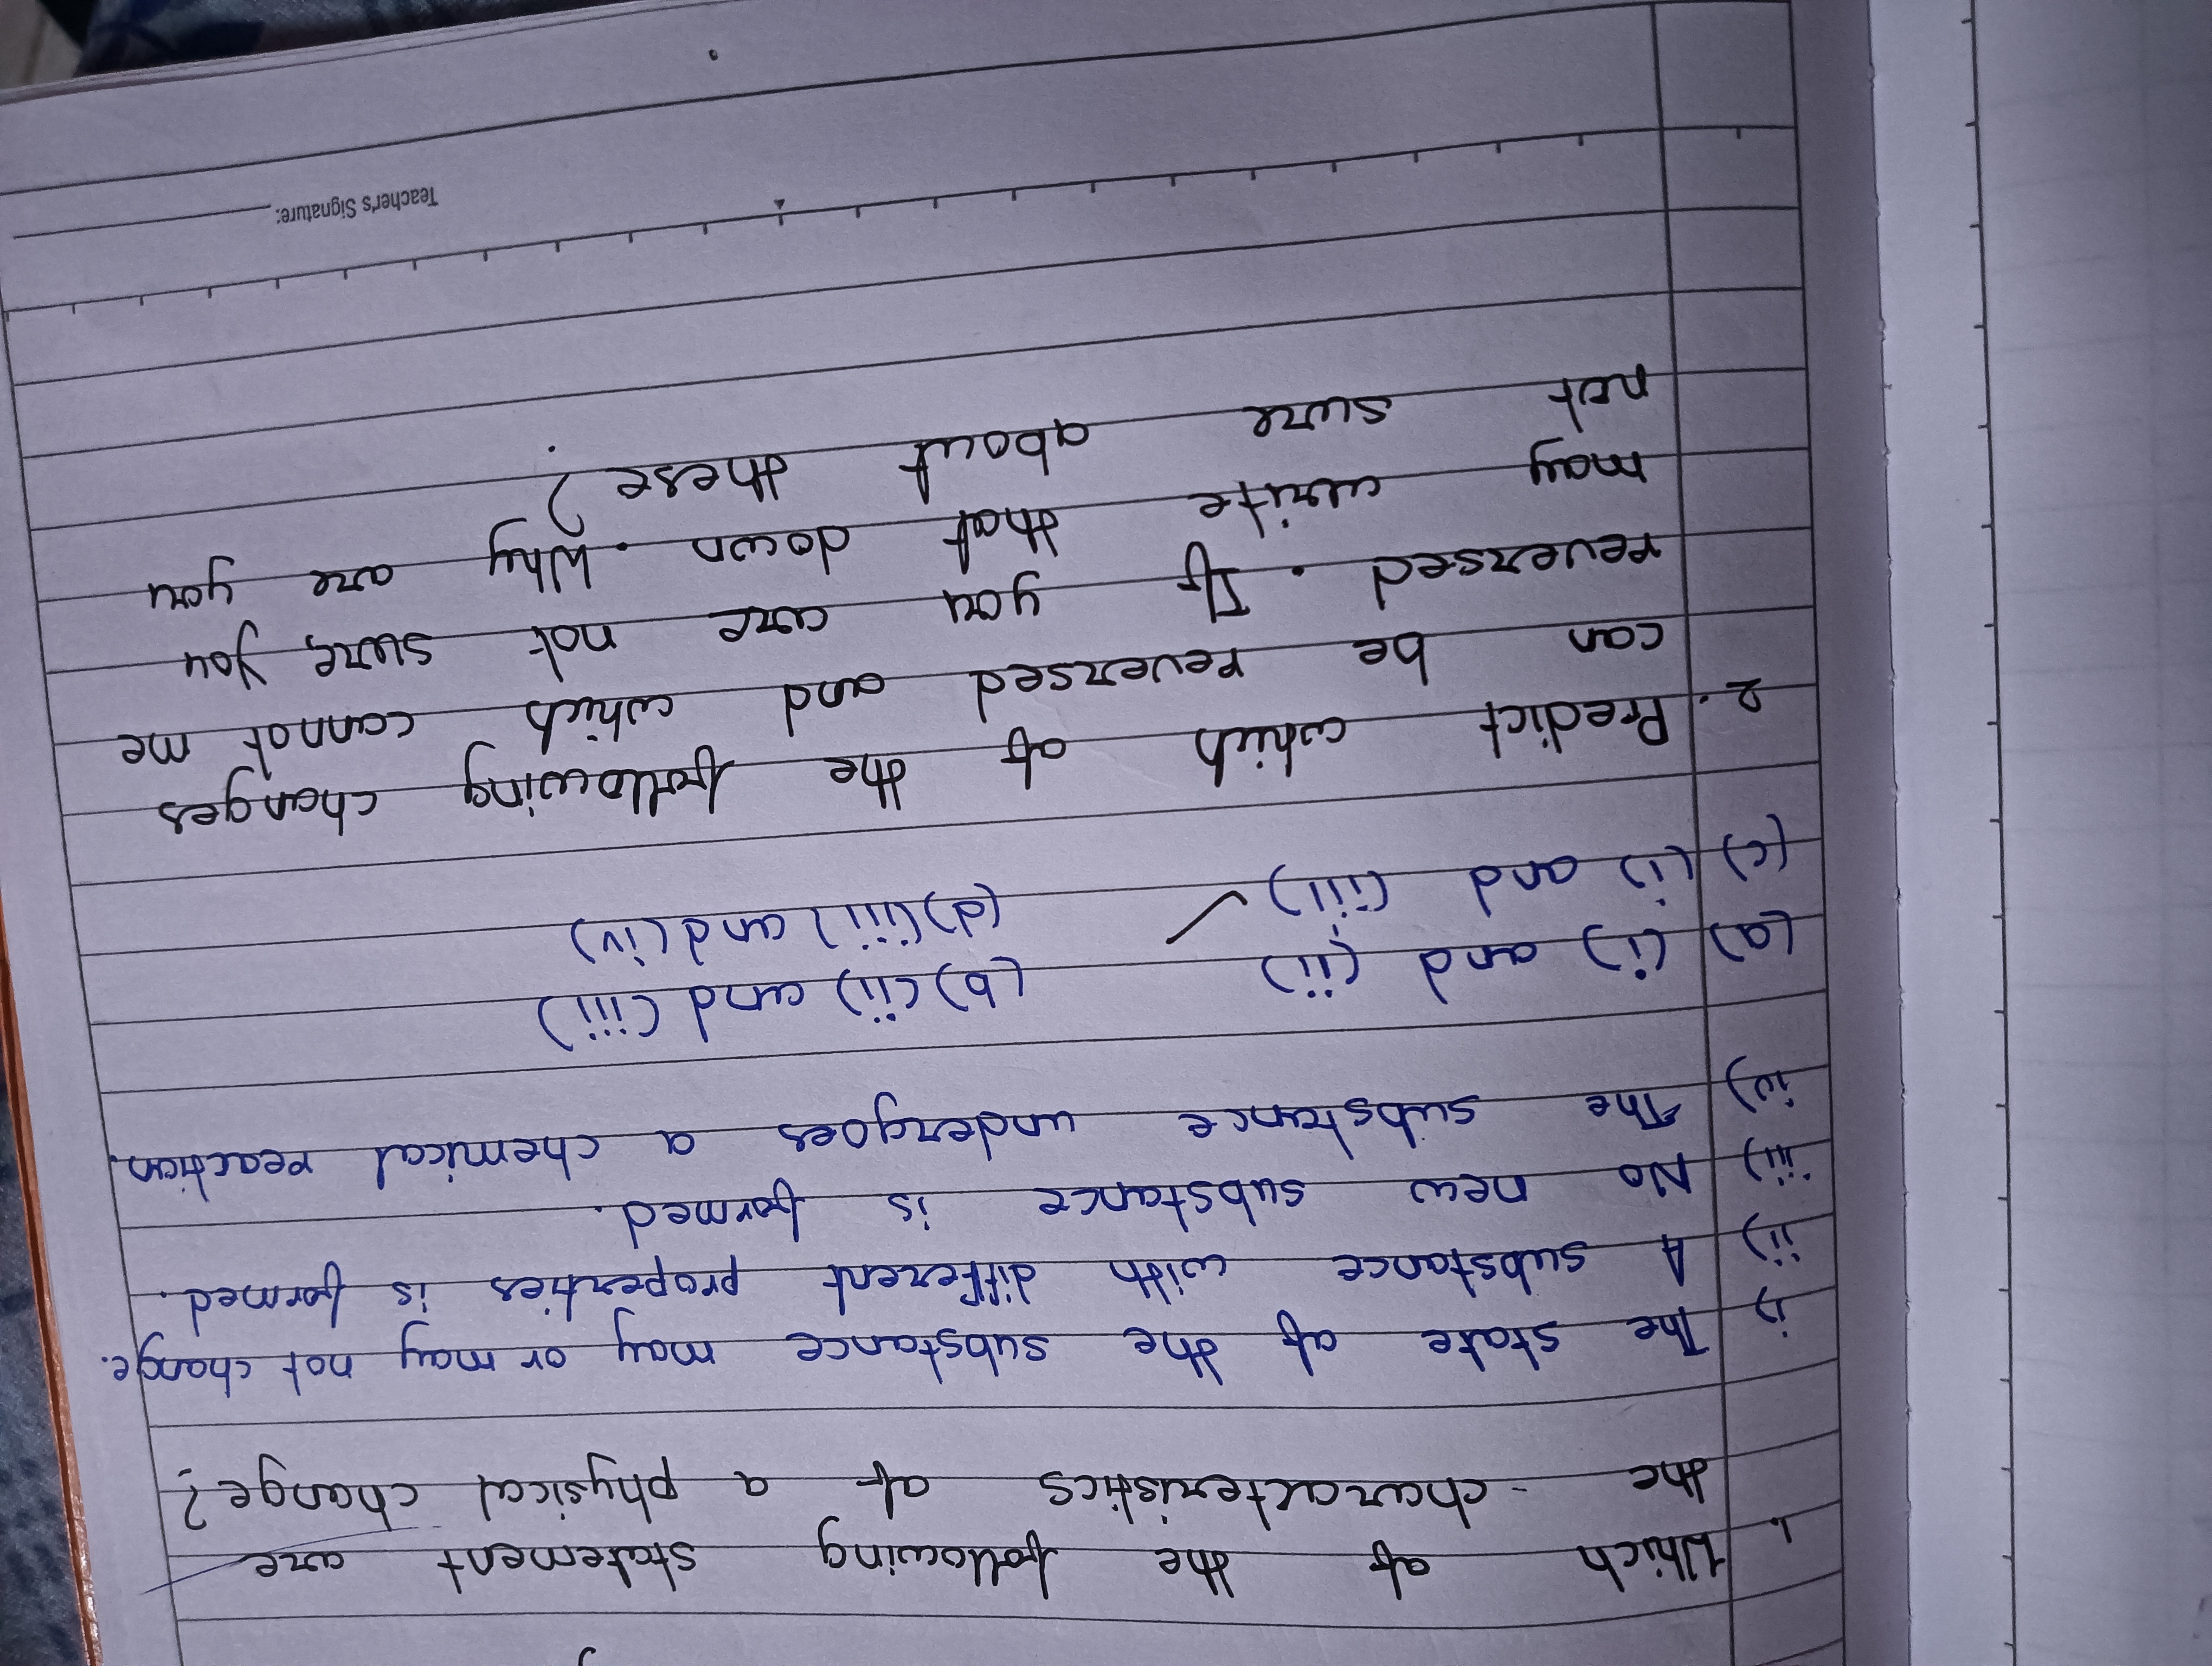 1. Which of the following statement are
the characteristics of a physical change?
i) The state of the substance may or may not change.
ii) A substance with different properties is formed.
iii) No new substance is formed.
iv) The substance undergoes a chemical reaction.
(a) (i) and (ii) (b) (ii) and (iii)
(c) (i) and (iii) ✓ (d) (iii) and (iv)
2. Predict which of the following changes
can be reversed and which cannot me
reversed. If you are not sure, you
may write that down. Why are you
not sure about these?
Teacher's Signature: